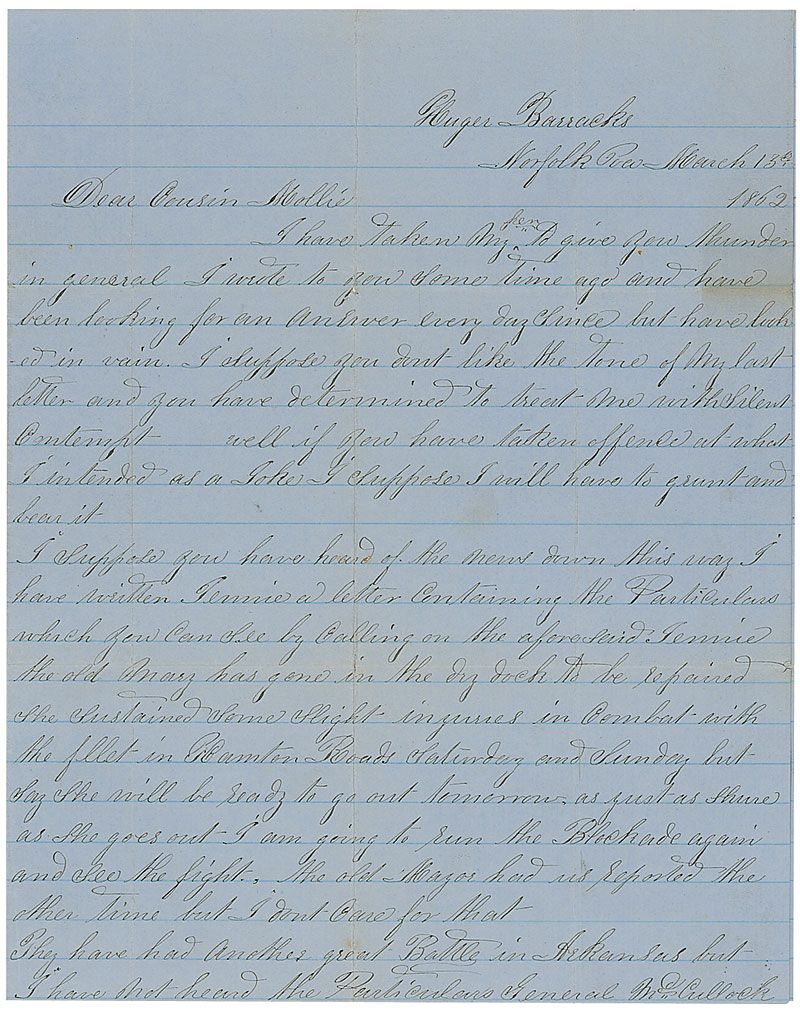 Huger Barracks
Norfolk Va March 13th
Dear Cousin Mollie 1862
I have taken My pen to give you thunder
in general I wrote to you some time ago and have
been looking for an answer every day since but have look
-ed in vain. I suppose you dont like the tone of My last
letter and you have determined to treat me with Silent
Contempt well if you have taken offence at what
I intended as a Joke I suppose I will have to grunt and
bear it
I suppose you have heard of the news down this way I
have written Jennie a letter Containing the Particulars
which you Can see by Calling on the aforesaid Jennie
the old Mary has gone in the dry dock to be repaired
she sustained some slight injuries in Combat with
the fllet in Hamton Roads Saturday and Sunday but
say she will be ready to go out tomorrow. as just as shure
as she goes out I am going to run the Blockade again
and see the fight. the old Major had us reported the
other time but I dont Care for that
They have had another great Battle in Arkansas but
I have not heard the Particulars General McCullock